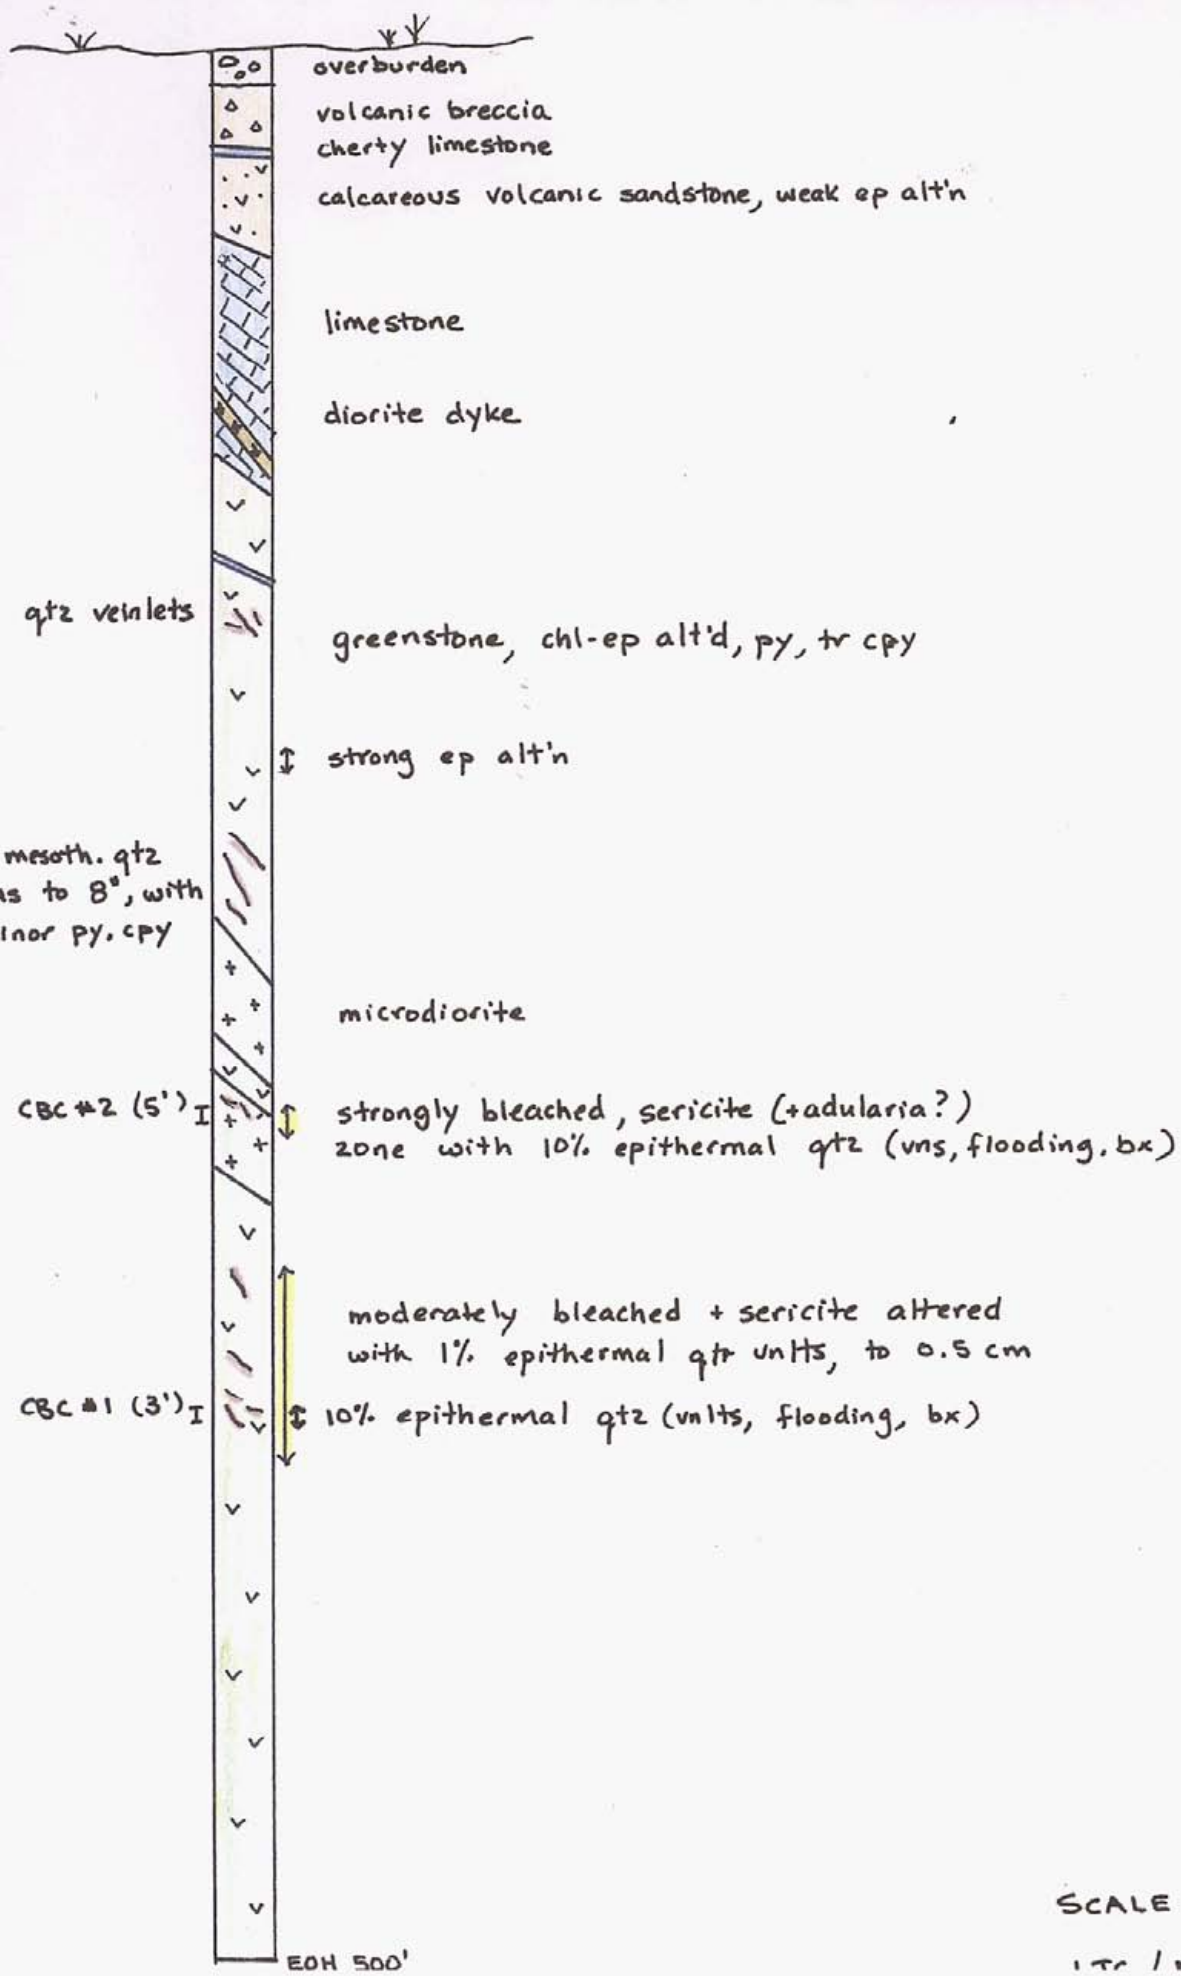 overburden
volcanic breccia
cherty limestone
calcareous volcanic sandstone, weak ep alt'n
limestone
diorite dyke
qtz veinlets
greenstone, chl-ep alt'd, py, tr cpy
strong ep alt'n
mesoth. qtz
ns to 8", with
inor py, cpy
microdiorite
CBC #2 (5')
strongly bleached, sericite (+adularia?)
zone with 10% epithermal qtz (vns, flooding, bx)
moderately bleached + sericite altered
with 1% epithermal qtz vnlts, to 0.5 cm
CBC #1 (3')
10% epithermal qtz (vnlts, flooding, bx)
EOH 500'
SCALE